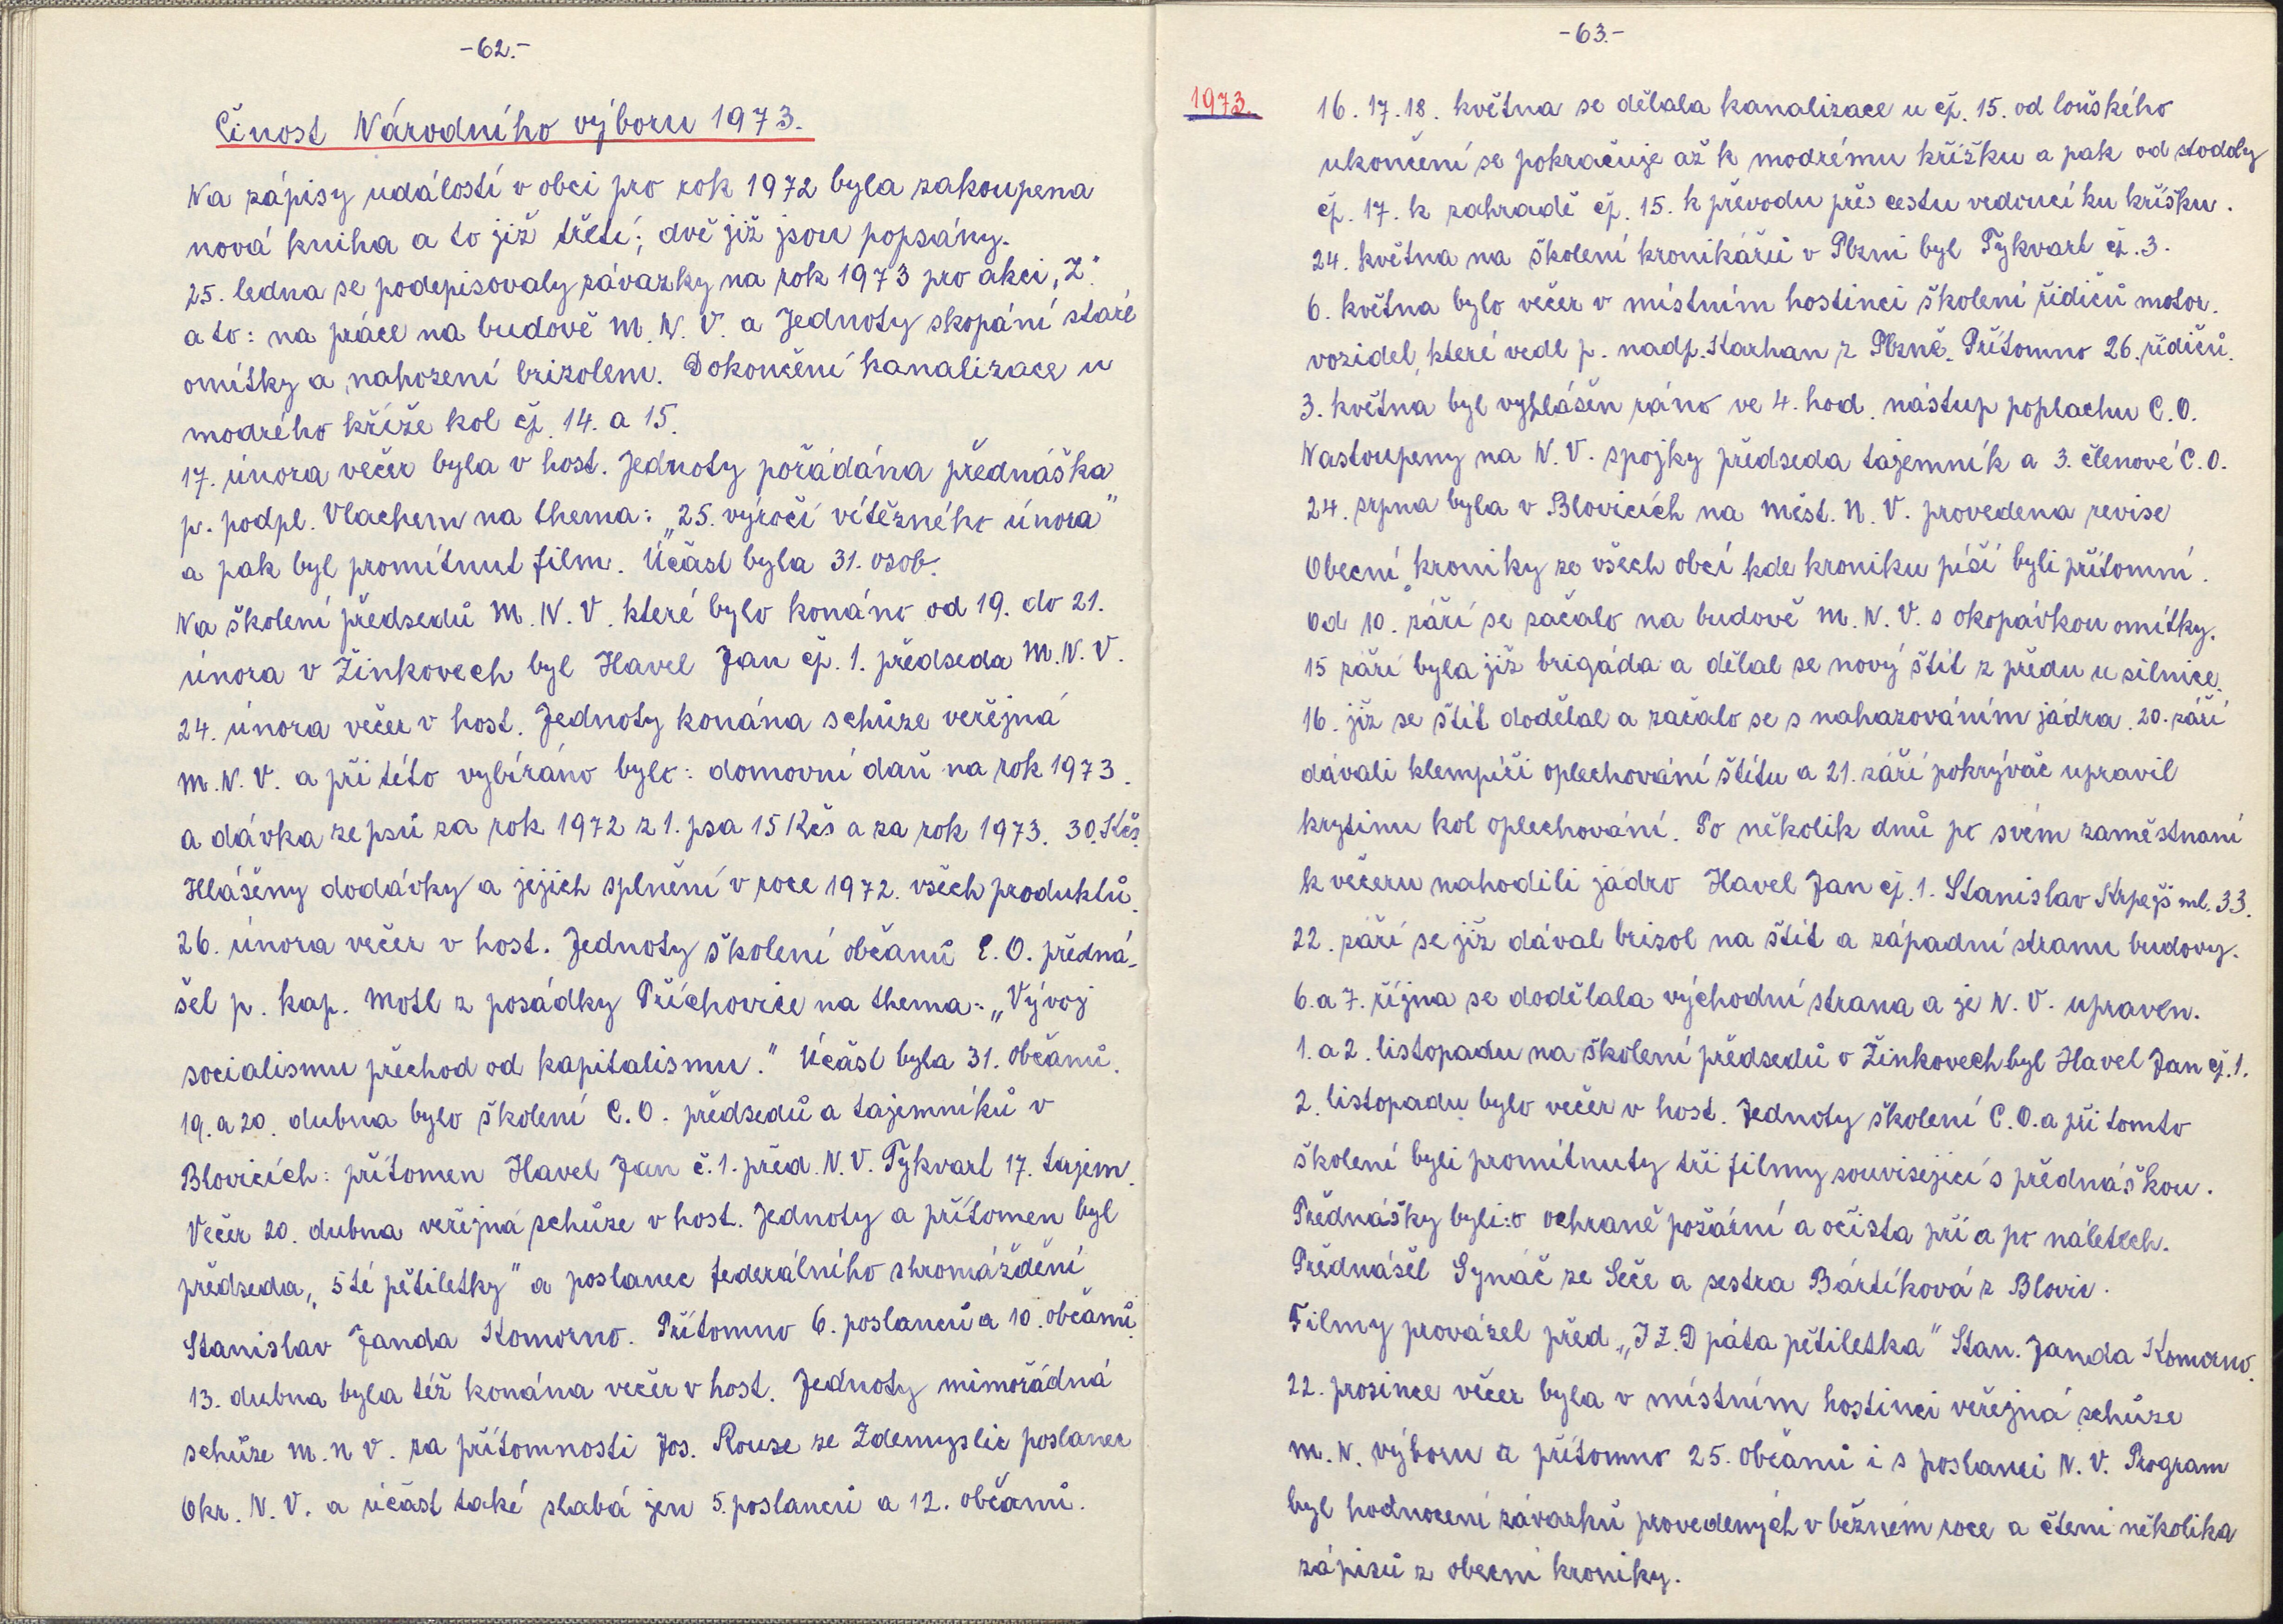 -62.-
Činost Národního výboru 1973.
Na zápisy událostí v obci pro rok 1972 byla zakoupena
nová kniha a to již třetí; dvě již jsou popsány.
25. ledna se podepisovaly závazky na rok 1973 pro akci „Z"
a to: na práce na budově M. N. V. a Jednoty skopání staré
omítky a nahození brizolem. Dokončení kanalizace u
modrého kříže kol čp. 14. a 15.
17. února večer byla v host. Jednoty pořádána přednáška
p. podpl. Vlachem na thema: „25. výročí vítězného února"
a pak byl promítnut film. Účást byla 31. osob.
Na školení předsedů M. N. V. které bylo konáno od 19. do 21.
února v Žinkovech byl Havel Jan čp. 1. předseda M. N. V.
24. února večer v host. Jednoty konána schůze veřejná
M. N. V. a při této vybíráno bylo: domovní daň na rok 1973.
a dávka ze psů za rok 1972 z 1. psa 15 Kčs a za rok 1973. 30. Kčs.
Hlášeny dodávky a jejich splnění v roce 1972. všech produktů.
26. února večer v host. Jednoty školení občanů C. O. předná-
šel p. kap. Motl z posádky Příchovice na thema: „Vývoj
socialismu přechod od kapitalismu." Účást byla 31. občanů.
19. a 20. dubna bylo školení C. O. předsedů a tajemníků v
Blovicích: přítomen Havel Jan č. 1. před. N. V. Tykvart 17. tajem.
Večer 20. dubna veřejná schůze v host. Jednoty a přítomen byl
předseda „5té pětiletky" a poslanec federálního shromáždění
Stanislav Janda Komorno. Přítomno 6. poslanců a 10. občanů.
13. dubna byla též konána večer v host. Jednoty mimořádná
schůze m. n v. za přítomnosti Jos. Rouse ze Zdemyslic poslanec
Okr. N. V. a účást také slabá jen 5. poslanců a 12. občanů.
-63.-
1973.
16. 17. 18. května se dělala kanalizace u čp. 15. od loňského
ukončení se pokračuje až k modrému křížku a pak od stodoly
čp. 17. k zahradě čp. 15. k převodu přes cestu vedoucí ku křížku.
24. května na školení kronikářů v Plzni byl Tykvart čp. 3.
6. května bylo večer v místním hostinci školení řidičů motor.
vozidel, které vedl p. nadp. Karhan z Plzně. Přítomno 26. řidičů.
3. května byl vyhlášen ráno ve 4. hod. nástup poplachu C. O.
Nastoupeny na N. V. spojky předseda tajemník a 3. členové C. O.
24. srpna byla v Blovicích na Měst. N. V. provedena revise
Obecní kroniky ze všech obcí kde kroniku píší byli přítomni.
Od 10. září se začalo na budově M. N. V. s okopávkou omítky.
15 září byla již brigáda a dělal se nový štít z předu u silnice.
16. již se štít dodělal a začalo se s nahazováním jádra. 20. září
dávali klempíři oplechování štítu a 21. září pokrývač upravil
krytinu kol oplechování. Po několik dnů po svém zaměstnaní
k večeru nahodili jádro Havel Jan čp. 1. Stanislav Krpejš ml. 33.
22. září se již dával brizol na štít a západní stranu budovy.
6. a 7. října se dodělala východní strana a je N. V. upraven.
1. a 2. listopadu na školení předsedů v Žinkovech byl Havel Jan čp. 1.
2. listopadu bylo večer v host. Jednoty školení C. O. a při tomto
školení byli promítnuty tři filmy související s přednáškou.
Přednášky byli: o ochraně požární a očista při a po náletech.
Přednášel Synáč ze Seče a sestra Bártíková z Blovic.
Filmy provázel před „J Z. D pátá pětiletka" Stan. Janda Komorno.
22. prosince večer byla v místním hostinci veřejná schůze
M. N. výboru a přítomno 25. občanů i s poslanci N. V. Program
byl hodnocení závazků provedených v běžném roce a čtení několika
zápisů z obecní kroniky.